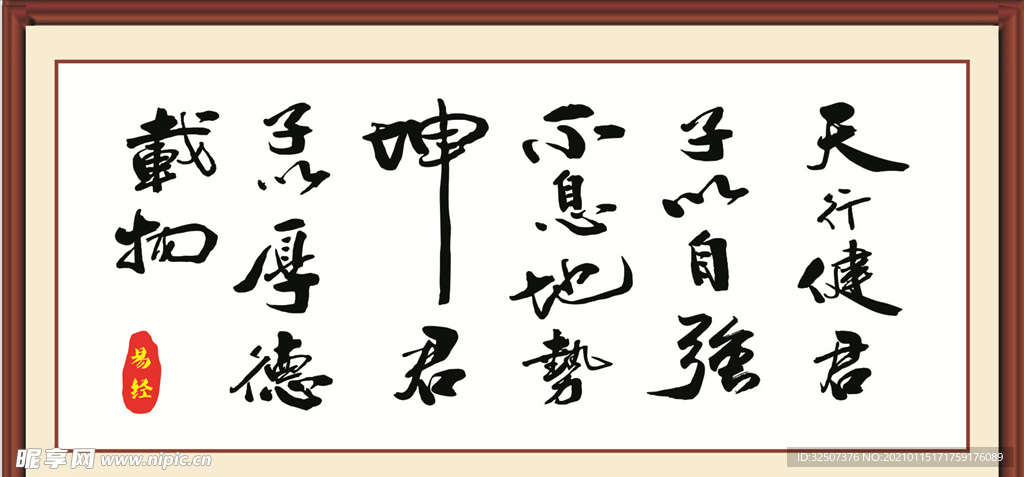 天行健君
子以自強
不息地勢
坤君
子以厚德
載物
易经
昵享网 www.nipic.cn
ID:32507376 NO:20210115171759176089